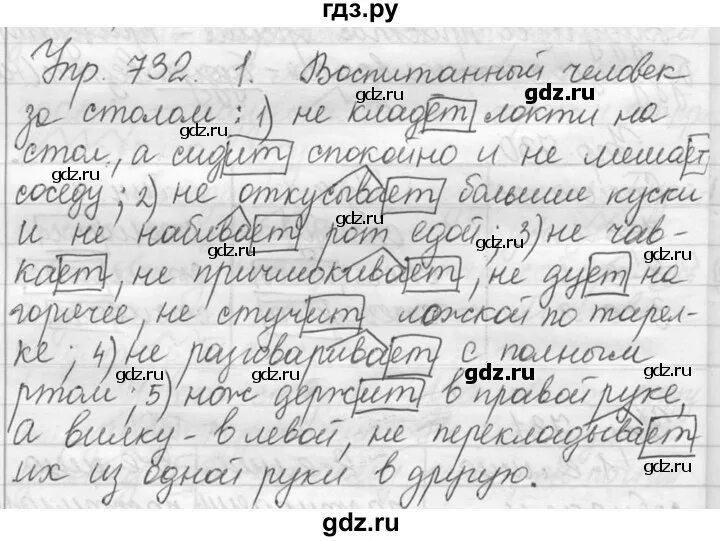 гдз.ру
Упр. 732. 1. Воспитанный человек
за столом: 1) не кладёт локти на
стол, а сидит спокойно и не мешает
соседу; 2) не откусывает большие куски
и не набивает рот едой; 3) не чав-
кает, не причмокивает, не дует на
горячее, не стучит ложкой по тарел-
ке; 4) не разговаривает с полным
ртом; 5) нож держит в правой руке,
а вилку - в левой, не перекладывает
их из одной руки в другую.
gdz.ru